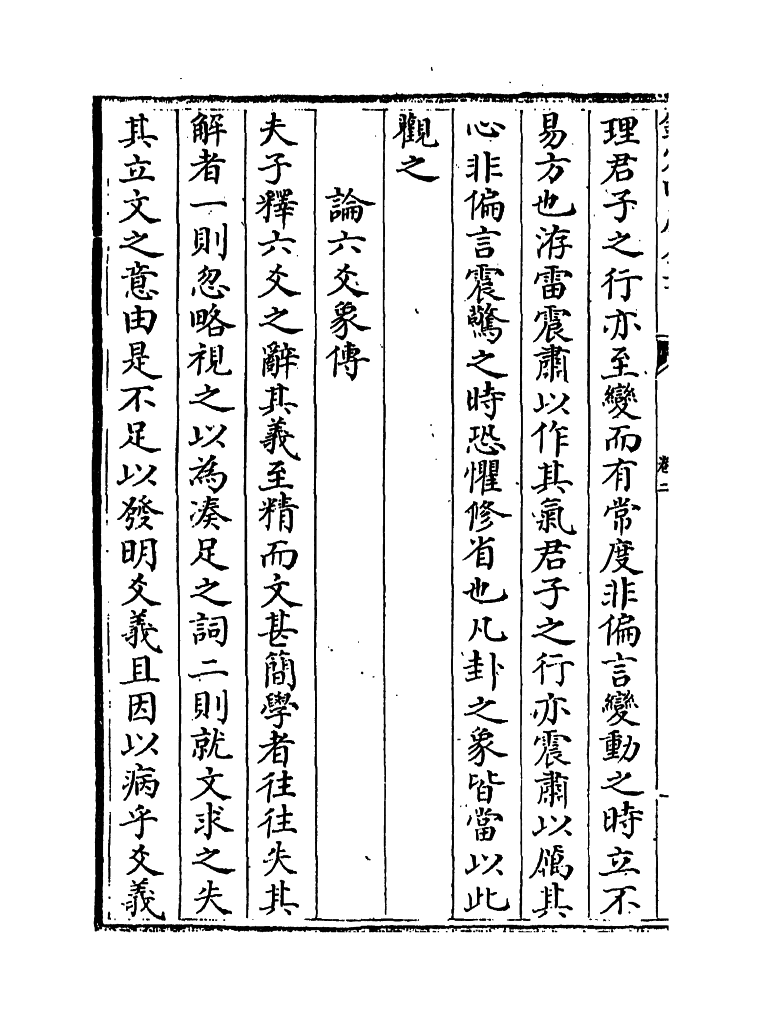 理君子之行亦至變而有常度非偏言變動之時立不
易方也洊雷震肅以作其氣君子之行亦震肅以礪其
心非偏言震驚之時恐懼修省也凡卦之象皆當以此
觀之
論六爻象傳
夫子釋六爻之辭其義至精而文甚簡學者往往失其
解者一則忽略視之以為湊足之詞二則就文求之失
其立文之意由是不足以發明爻義且因以病乎爻義
卷二